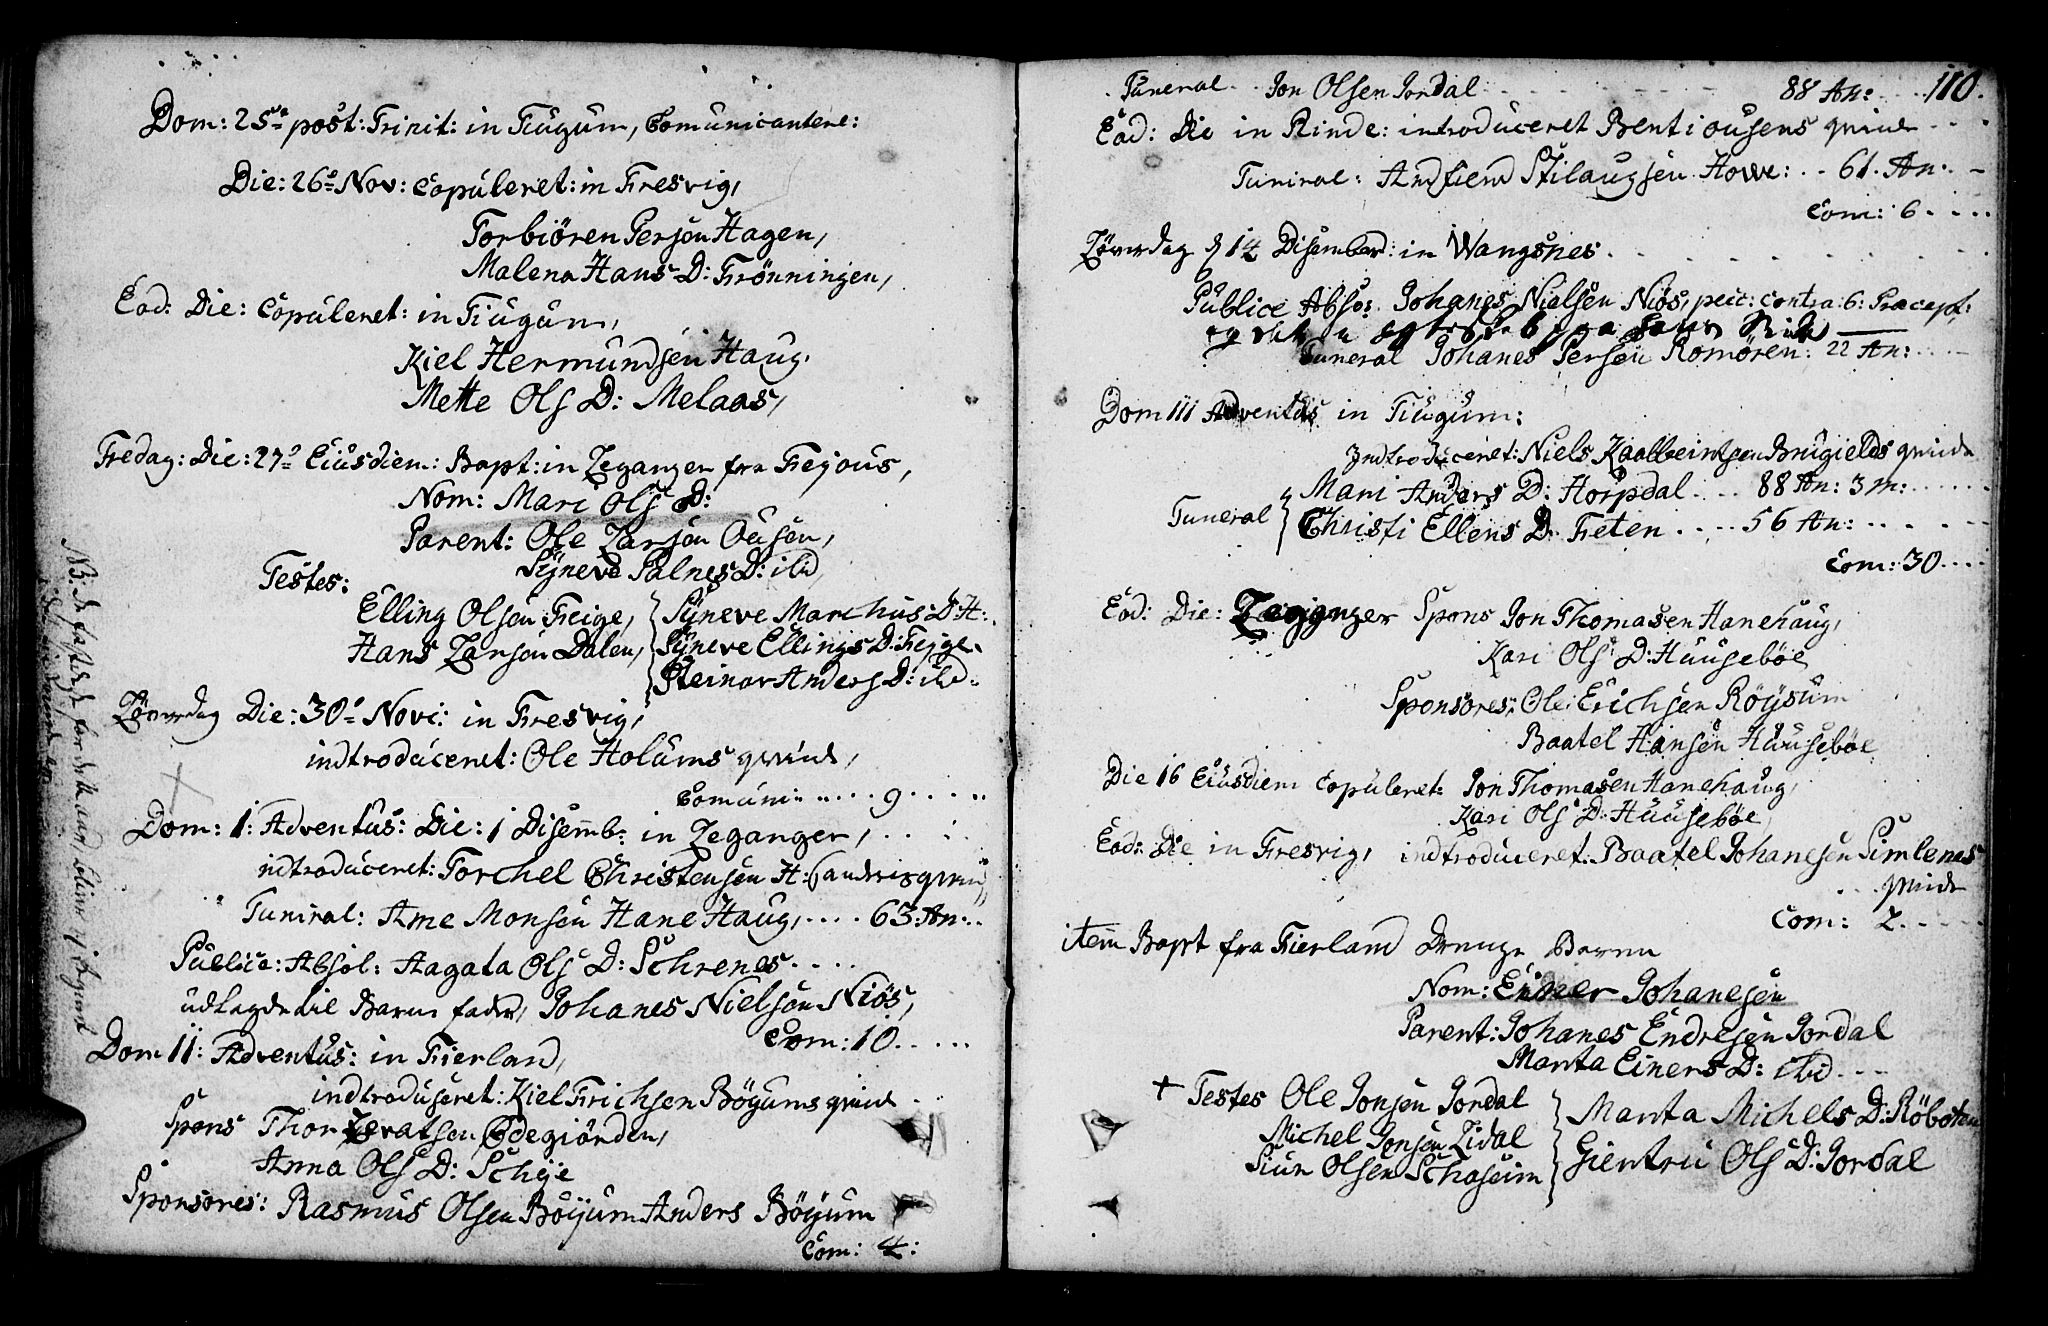 Dom: 25de post: Trinit: in Tiugum, Comunicantere:
Die: 26de Nov: Copuleret: in Fresvig,
Torbiören Persøn Hagen,
Malena Hans D: Frönningen,
Eod: Die: Copuleret: in Tiugum,
Kiel Hermundsen Haug,
Mette Ols D: Melaas,
Fredag: Die: 27de Eiusdiem: Bapt: in Leganger fra Fejous,
Nom: Mari Ols D:
Parent: Ole Larsøn Ousen,
Syneve Palnes D: ibid
Testes:
Elling Olsen Feige,
Hans Larsøn Dalen,
Syneve Marchus: D: H:
Syneve Ellings D: Fejge.
Steinor Anders D: ibd.
Löverdag Die: 30de Novi: in Fresvig,
indtroduceret: Ole Holums qvinde,
Comuni: ..... 9 .....
Dom: 1: Adventus: Die: 1 Disemb: in Leganger,
indtroduceret: Torchel Christensen H:
Funiral: Arne Monsen Hane Haug, .... 63: An:..
Publice: Absol: Aagata Ols D: Schrenes ....
udlagde til Barne fader, Johanes Nielsøn Niös,
Com: 10 .....
Dom II: Adventus: in Fierland,
indtroduseret: Kiel Erichsen Böyums qvinde
Spons Thor Levatsen Ödegiörden,
Anna Ols D: Scheje
Sponsores: Rasmus Olsen Böÿum Anders Böÿum
Com: 4:
NB:
110.
Funeral .. Jon Olsen Jordal ....... 88 An:
Eod: Die in Rinde: introduceret Bent iousens qvinde ...
Funiral: Stilaugsen Howe: .. 61. An:. -
Com: 6 ....
Löverdag d 14 Disember: in Wangsnes.
Publice Abso: Johanes Nielsen Niös, pecc: contra: 6: Præcept:
Funeral Johanes Persen Romören: 22 An: ....
Dom III Adventus in Tiugum:
Indtroduceret: Niels Kaalbeintsøn Brugields qvinde
Funeral
Mari Anders D: Horpdal .... 88 An: 3 m: ......
Christi Ellens D: Feten .... 56 An: ......
Com: 30 ....
Eod: Die: Leganger Spons Jon Thomasen Hanehaug,
Kari Ols D: Huusebøe
Sponsores: Ole: Erichsen Röÿsum
Baatel Hansen Huusebøe
Die 16 Eiusdiem Copuleret: Jon Thomasen Hanehaug,
Kari Ols D: Huusebøe,
Eod: Die in Fresvig, indtroduceret: Baatel Johanesen Simlenes
... qvinde
Com: 2 .....
item Bapt fra Fierland Drenge Baren
Nom: Einer Johanesen
Parent: Johanes Endresen Jordal
Marta Einers D: ibid ...
+ Testes Ole Jonsen Jordal
Michel Jonsen Lidal
Siur Olsen Schaseim
Marta Michels D: Röboten
Giertru Ols D: Jordal